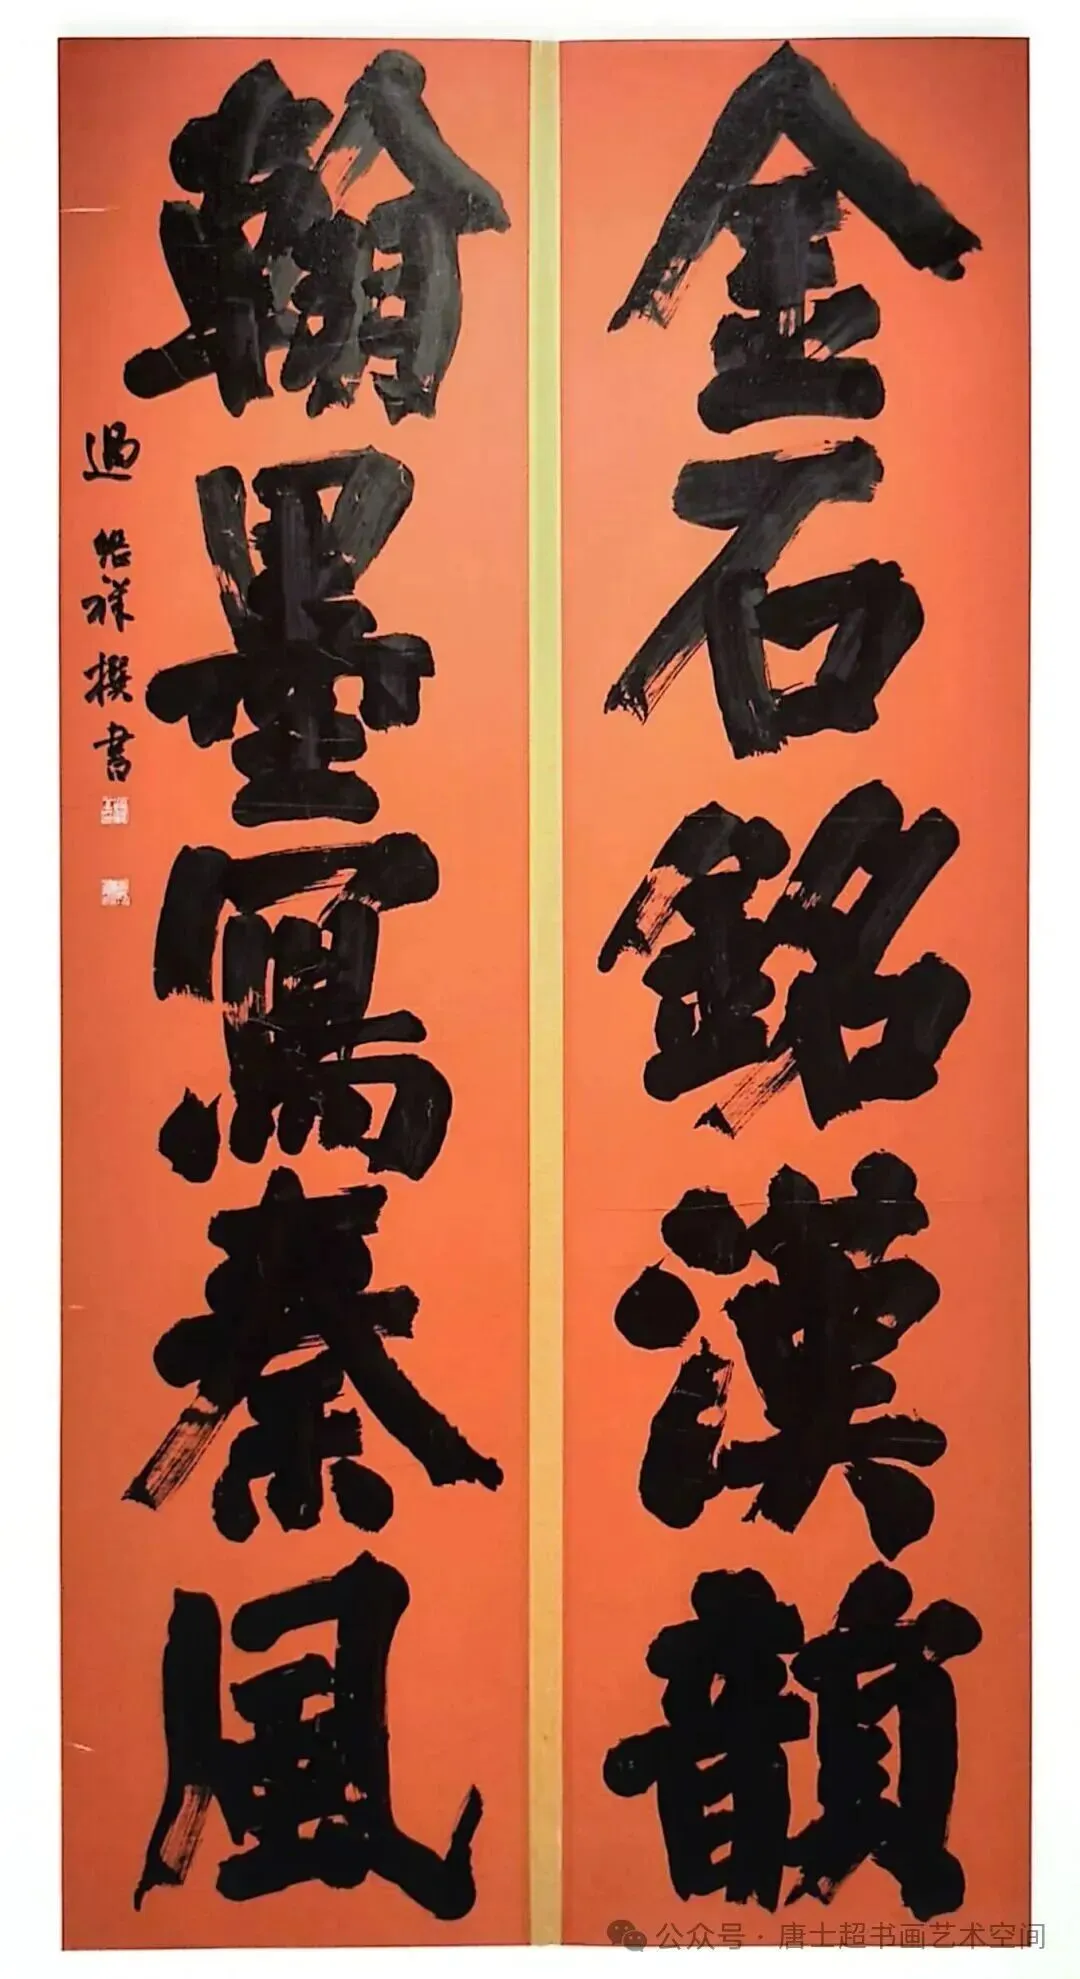 金石銘漢韻
翰墨寫秦風
過紹祥撰書
公众号·唐士超书画艺术空间